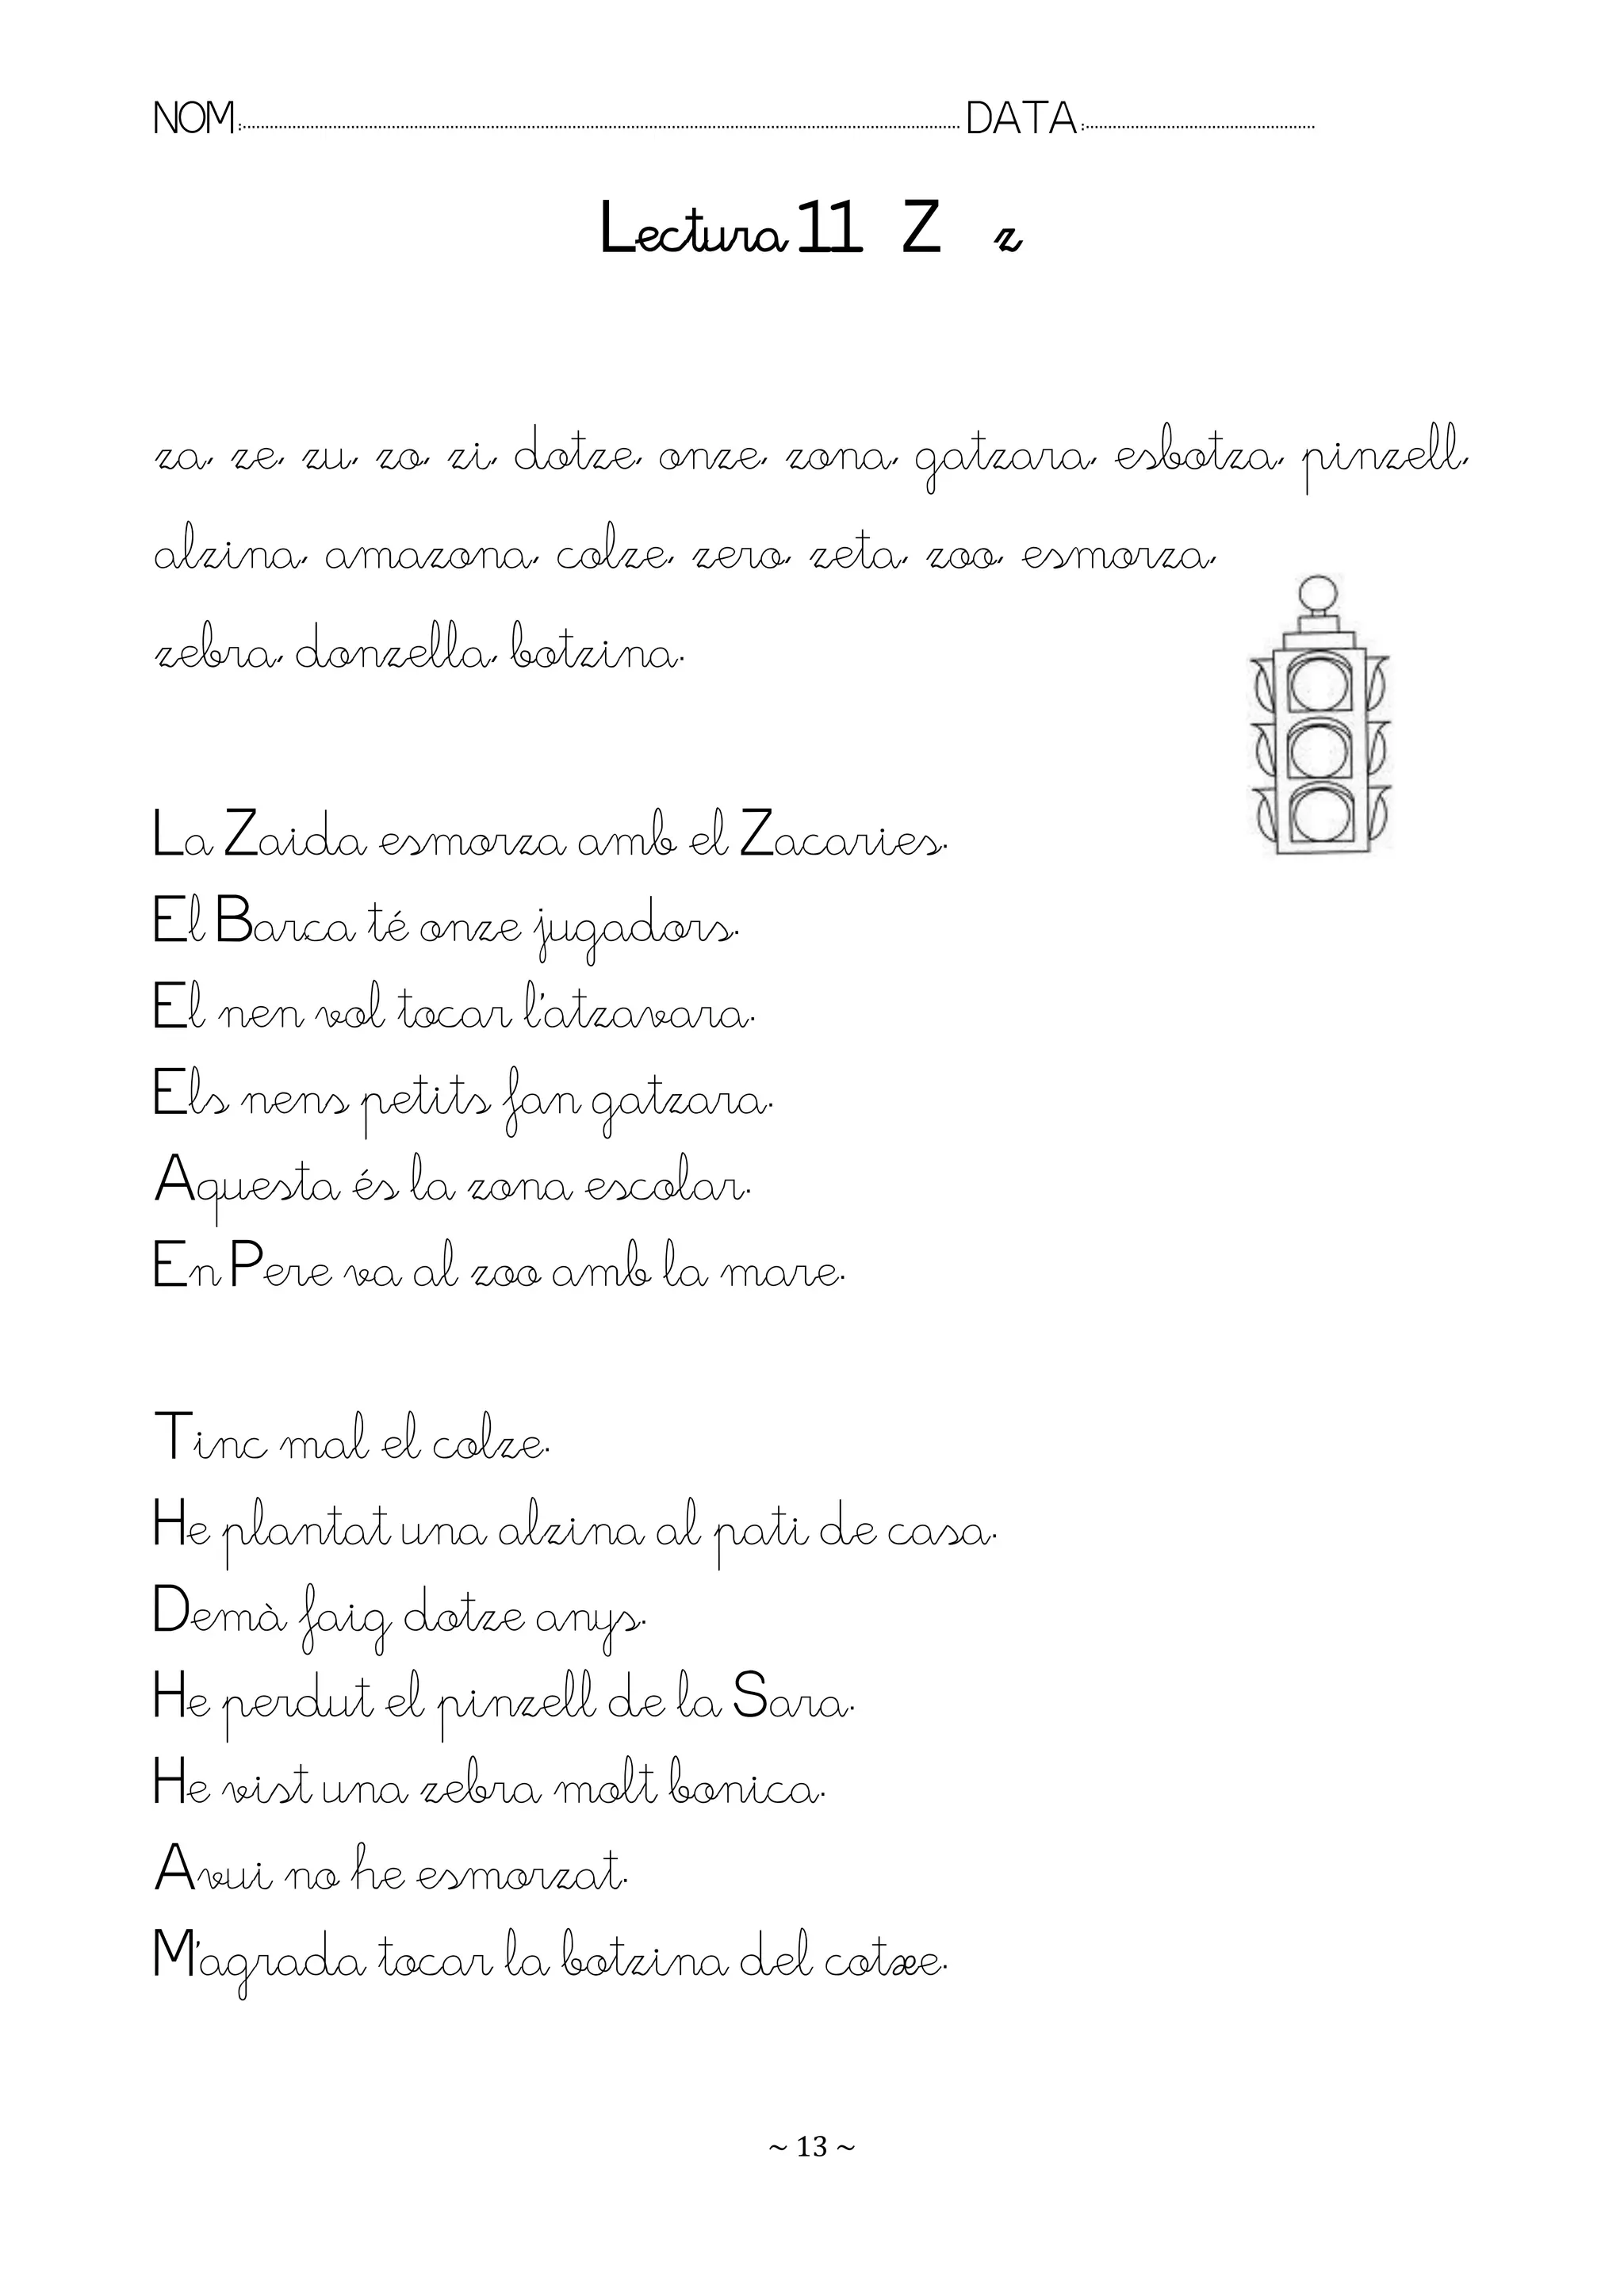 NOM:.......................................................................... DATA:..............................
Lectura 11 Z z
za, ze, zu, zo, zi, dotze, onze, zona, gatzara, esbotza, pinzell,
alzina, amazona, colze, zero, zeta, zoo, esmorza,
zebra, donzella, botzina.
La Zaida esmorza amb el Zacaries.
El Barça té onze jugadors.
El nen vol tocar l'atzavara.
Els nens petits fan gatzara.
Aquesta és la zona escolar.
En Pere va al zoo amb la mare.
Tinc mal el colze.
He plantat una alzina al pati de casa.
Demà faig dotze anys.
He perdut el pinzell de la Sara.
He vist una zebra molt bonica.
Avui no he esmorzat.
M'agrada tocar la botzina del cotxe.
~ 13 ~